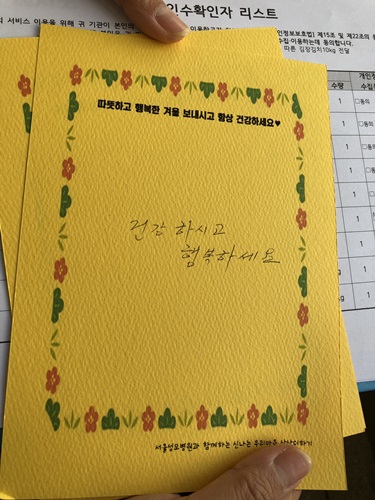 인수확인자 리스트
서비스 이용을 위해 귀 기관이 본인의
정보보호법] 제15조 및 제22조의
수집·이용하는데 동의합니다.
따른 김장김치10kg 전달
수량
개인정
수집/
1 □동의
1 □동의
1 □동의
1
1
1
1
따뜻하고 행복한 겨울 보내시고 항상 건강하세요♥
건강하시고
행복하세요
서울성모병원과 함께하는 신나는 우리마을